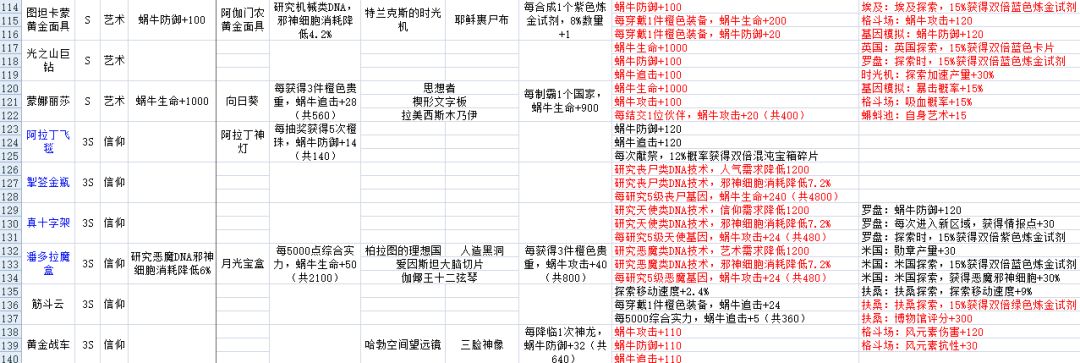 114 图坦卡蒙 S 艺术 蜗牛防御+100 阿伽门农 研究机械类DNA技术, 特兰克斯的时光 耶稣裹尸布 每合成1个紫色炼 蜗牛防御+100 埃及: 埃及探索, 15%获得双倍蓝色炼金试剂
115 黄金面具 黄金面具 邪神细胞消耗降 机 金试剂, 8%数量 每穿戴1件橙色装备, 蜗牛生命+200 格斗场: 蜗牛攻击+120
116 低4.2% +1 每穿戴1件橙色装备, 蜗牛防御+20 基因模拟: 蜗牛防御+120
117 光之山巨 S 艺术 蜗牛生命+1000 英国: 英国探索, 15%获得双倍蓝色卡片
118 钻 蜗牛防御+100 罗盘: 探索时, 15%获得双倍蓝色炼金试剂
119 蜗牛追击+100 时光机: 探索加速产量+30%
120 蒙娜丽莎 S 艺术 蜗牛生命+1000 向日葵 每获得3件橙色贵 思想者 每制霸1个国家, 蜗牛生命+1000 基因模拟: 暴击概率+15%
121 重, 蜗牛追击+28 楔形文字板 蜗牛生命+900 蜗牛攻击+100 格斗场: 吸血概率+15%
122 (共560) 拉美西斯木乃伊 每结交1位伙伴, 蜗牛攻击+20 (共400) 蝌蚪池: 自身艺术+15
123 阿拉丁飞 3S 信仰 阿拉丁神 每抽奖获得5次橙 蜗牛防御+120
124 毯 灯 珠, 蜗牛防御+14 蜗牛追击+120
125 (共140) 每次献祭, 12%概率获得双倍混沌宝箱碎片
126 掣签金瓶 3S 信仰 研究丧尸类DNA技术, 人气需求降低1200
127 研究丧尸类DNA技术, 邪神细胞消耗降低7.2%
128 每研究5级丧尸基因, 蜗牛生命+240 (共4800)
129 真十字架 3S 信仰 研究天使类DNA技术, 信仰需求降低1200 罗盘: 蜗牛防御+120
130 研究天使类DNA技术, 邪神细胞消耗降低7.2% 罗盘: 每次进入新区域, 获得情报点+30
131 每研究5级天使基因, 蜗牛攻击+24 (共480) 罗盘: 探索时, 15%获得双倍紫色炼金试剂
132 潘多拉魔 3S 信仰 研究恶魔DNA邪神 月光宝盒 每5000点综合实 柏拉图的理想国 人造黑洞 每获得3件橙色贵 研究恶魔类DNA技术, 艺术需求降低1200 米国: 勋章产量+30
133 盒 细胞消耗降低6% 力, 蜗牛生命+50 爱因斯坦大脑切片 重, 蜗牛攻击+40 研究恶魔类DNA技术, 邪神细胞消耗降低7.2% 米国: 米国探索, 15%获得双倍蓝色炼金试剂
134 (共2100) 伽倻王十二弦琴 (共800) 每研究5级恶魔基因, 蜗牛攻击+24 (共480) 米国: 米国探索, 获得恶魔邪神细胞+30%
135 筋斗云 3S 信仰 探索移动速度+2.4% 扶桑: 扶桑探索, 探索移动速度+9%
136 每穿戴1件橙色装备, 蜗牛追击+24 扶桑: 扶桑探索, 15%获得双倍绿色炼金试剂
137 每5000综合实力, 蜗牛追击+5 (共360) 扶桑: 博物馆评分+300
138 黄金战车 3S 信仰 哈勃空间望远镜 三脸神像 每降临1次神龙, 蜗牛攻击+110 格斗场: 风元素伤害+120
139 蜗牛防御+32 (共 蜗牛防御+110 格斗场: 风元素抗性+30
140 640) 蜗牛追击+110